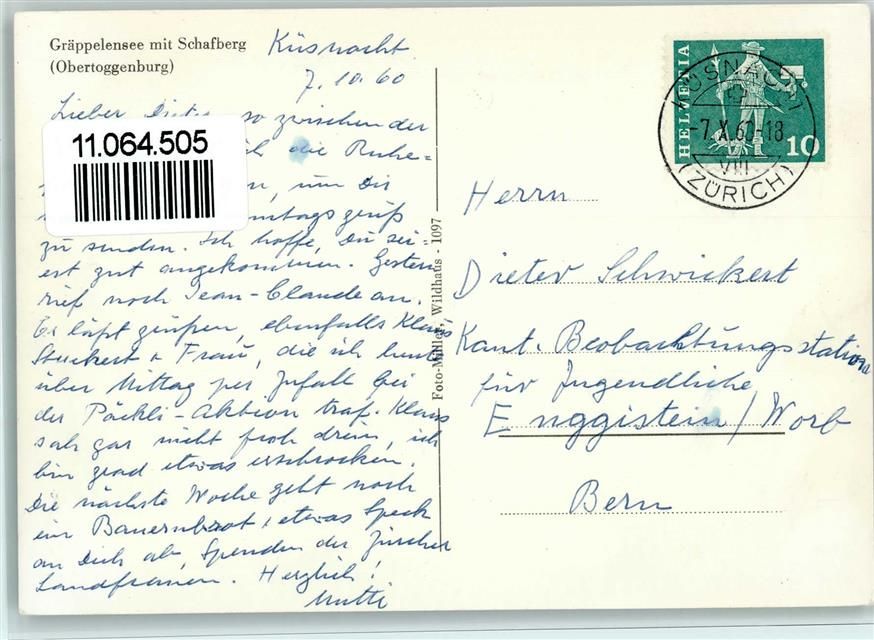 Gräppelensee mit Schafberg
(Obertoggenburg)
Küsnacht
7.10.60
Lieber Dieter, so zwischen der
11.064.505
ich die Ruhe-
um Dir
gruß
zu senden. Ich hoffe, Du sei-
est gut angekommen. Gestern
rief noch Jean-Claude an.
Er läßt grüßen, ebenfalls Klaus
Stuckert & Frau, die ich heute
über Mittag per Zufall bei
der Päckli-Aktion traf. Klaus
sah gar nicht froh drein, ich
bin grad etwas erschrocken.
Die nächste Woche geht noch
ein Bauernbrot, etwas Speck
an Dich ab, Spenden der Zürcher
Landfrauen. Herzlich!
Mutti
Foto-Müller, Wildhaus - 1097
HELVETIA
10
KÜSNACHT
-7.X.60-18
VIII
(ZÜRICH)
Herrn
Dieter Schwickert
Kant. Beobachtungsstation
für Jugendliche
Enggistein/Worb
Bern